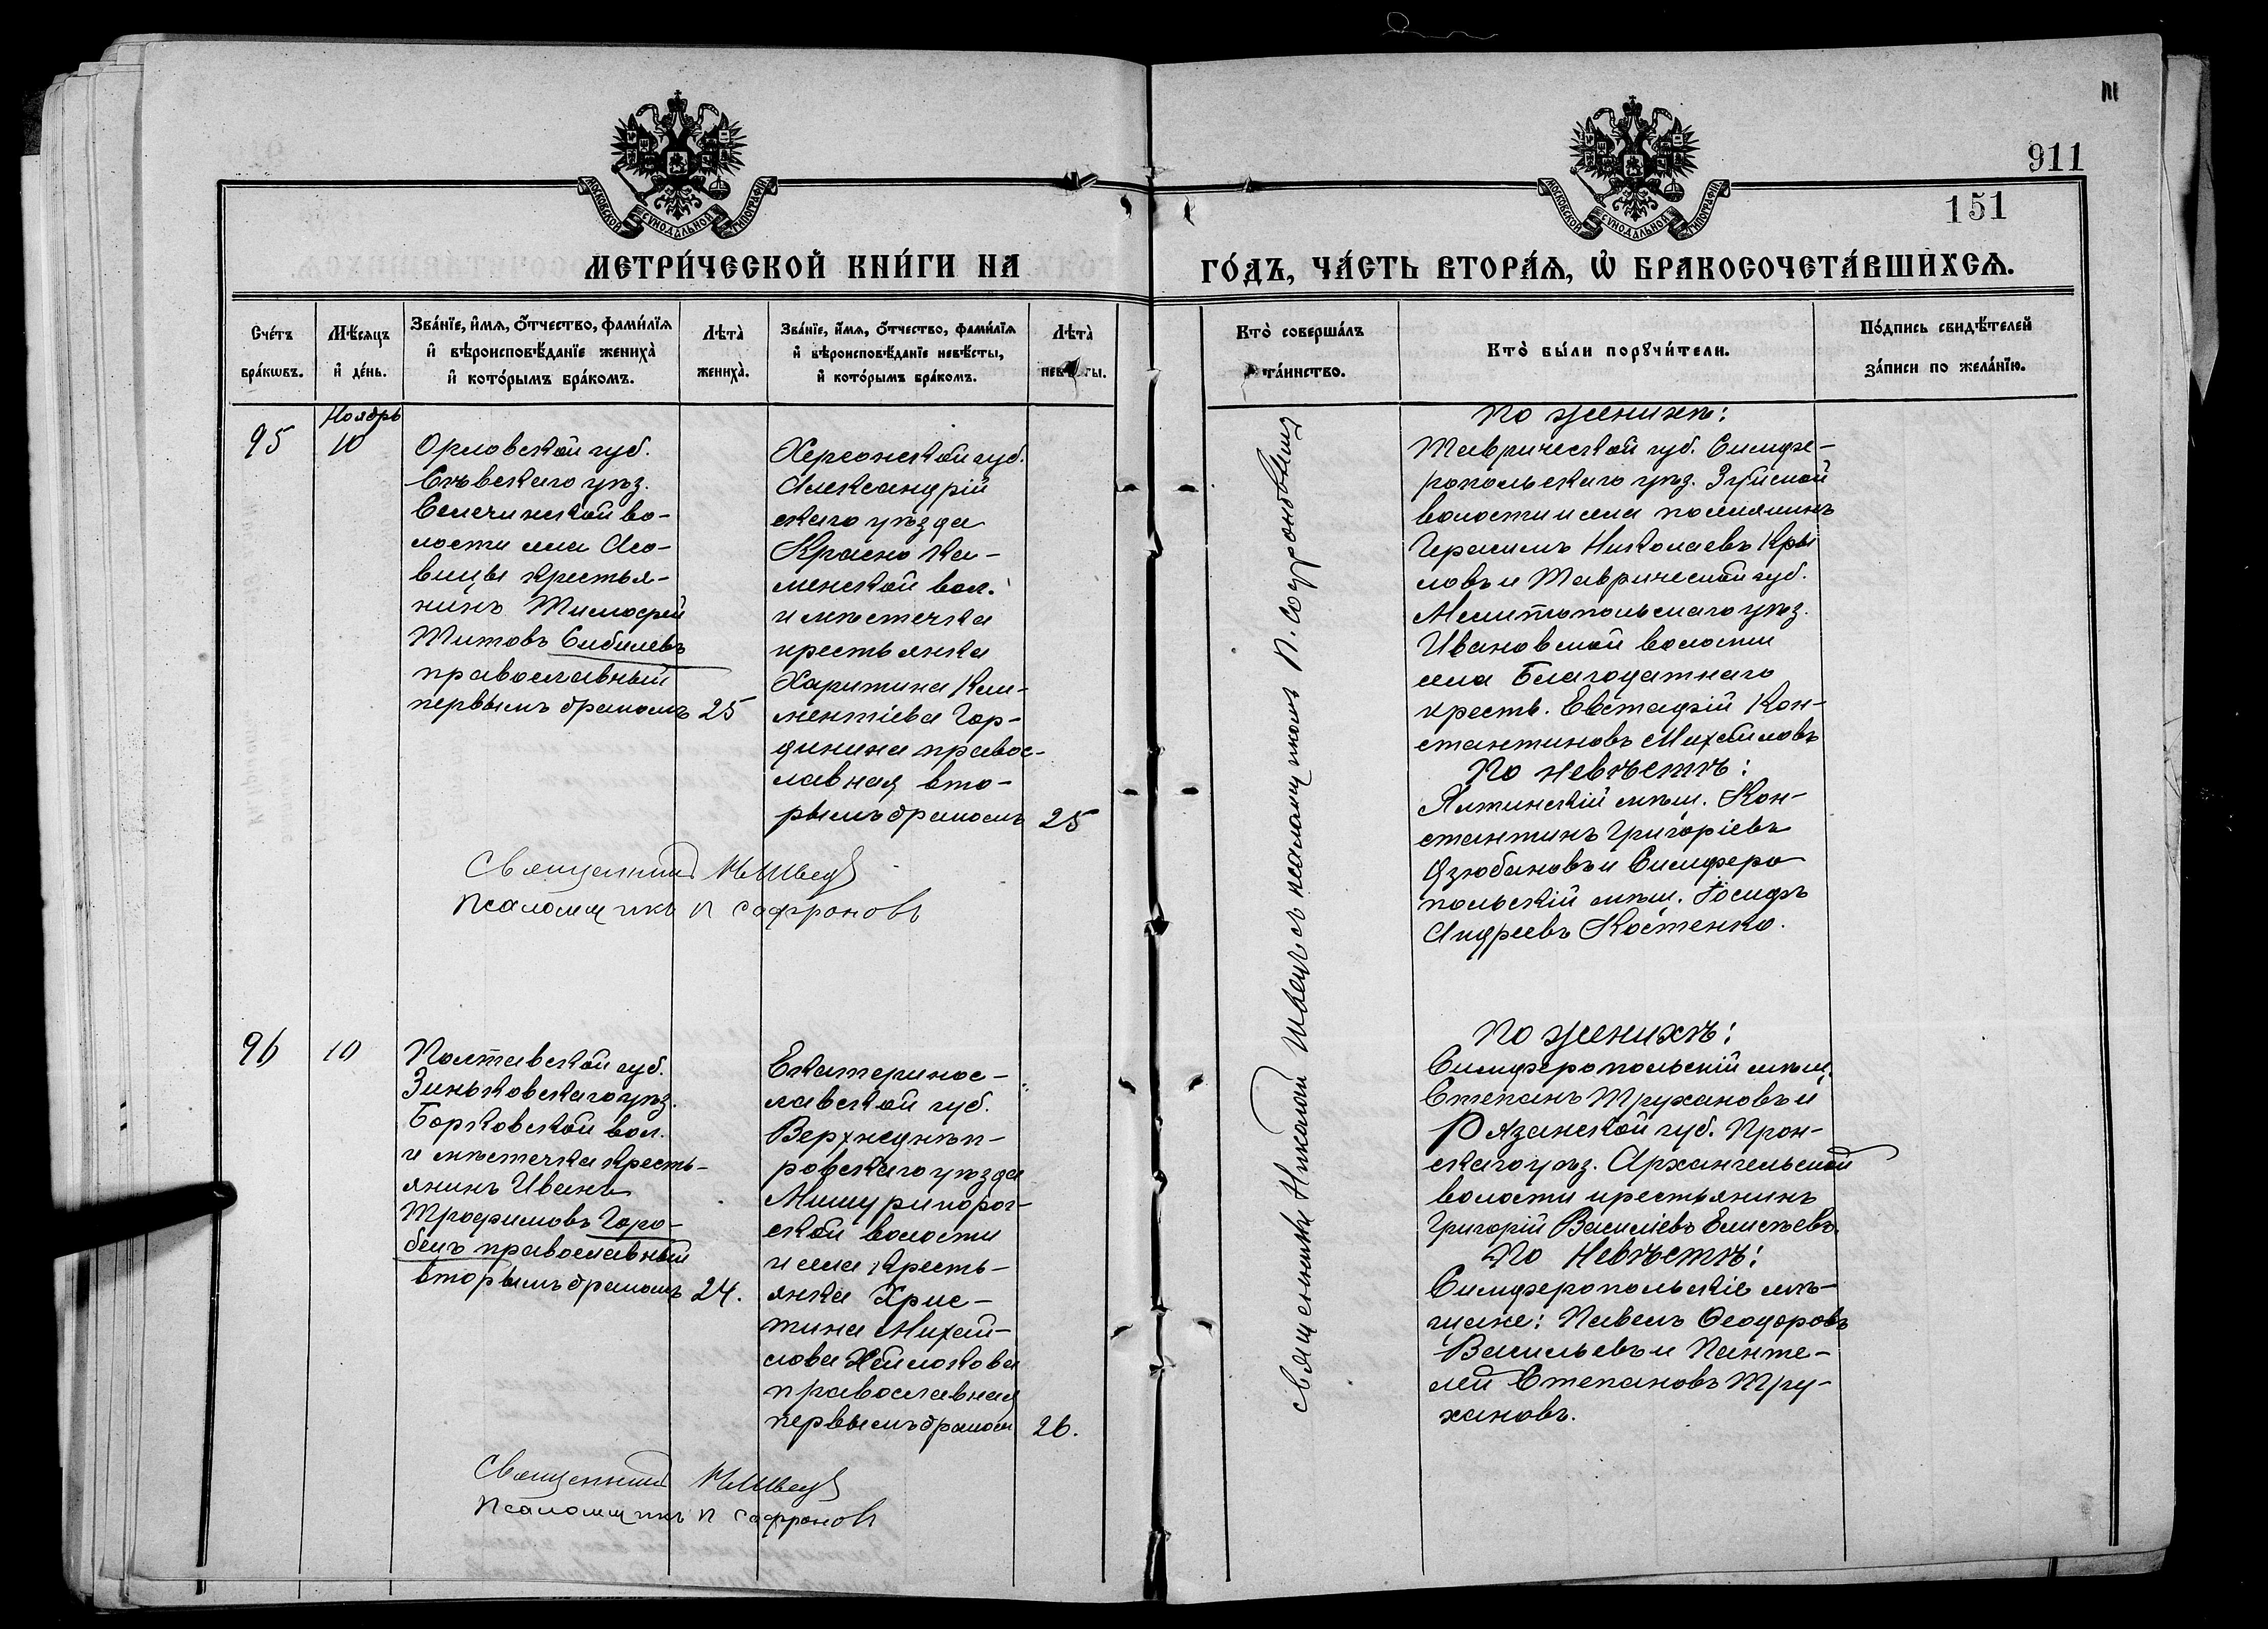 911
151
МОСКОВСКОЙ СѴНОДАЛЬНОЙ ТИПОГРАФІИ
МОСКОВСКОЙ СѴНОДАЛЬНОЙ ТИПОГРАФІИ
МЕТРИ́ЧЕСКОЙ КНИ́ГИ НА
ГО́ДЪ, ЧА́СТЬ ВТОРА́Ѧ, Ѽ БРАКОСОЧЕТА́ВШИХСѦ.
Сче́тъ бра́кѡвъ.
Мѣ́сяцъ и҆ де́нь.
Зва́нїе, и҆́мѧ, ѻ҆́тчество, фами́лїѧ и҆ вѣроисповѣ́данїе жениха̀ и҆ кото́рымъ бра́комъ.
Лѣта̀ жениха̀.
Зва́нїе, и҆́мѧ, ѻ҆́тчество, фами́лїѧ и҆ вѣроисповѣ́данїе невѣ́сты, и҆ кото́рымъ бра́комъ.
Лѣта̀ невѣ́сты.
Кто̀ соверша́лъ та́инство.
Кто̀ бы́ли порꙋчи́тели.
По́дпись свидѣ́телей за́писи по жела́нїю.
Ноябрь
95
10
Орловской губ.
Сѣвскаго уѣз.
Селечинской во-
лости села Асо-
вицы крестья-
нинъ Тимофей
Титовъ Сибилевъ
православный
первымъ бракомъ 25
Херсонской губ.
Александрій
скаго уѣзда
Красно Ка-
менской вол.
и мѣстечка
крестьянка
Харитина Кли-
ментіева Гор-
динина правос-
лавная вто-
рымъ бракомъ 25
Священникъ Н Швецъ
Псаломщикъ П Софроновъ
Священникъ Николай Швецъ съ псаломщикомъ П. Софроновымъ
По женихѣ:
Таврической губ. Симфе-
ропольскаго уѣз. Зуйской
волости и села поселянинъ
Герасимъ Николаевъ Кры
ловъ и Таврической губ.
Мелитопольскаго уѣз.
Ивановской волости
села Благодатнаго
кресть. Евстафій Кон-
стантиновъ Михайловъ
По невѣстѣ:
Ялтинскій мѣщ. Кон-
стантинъ Григоріевъ
Дзюбановъ и Симферо
польскій мѣщ. Іосифъ
Андреевъ Костенко.
96
10
Полтавской губ.
Зиньковскаго уѣз.
Борковской вол.
и мѣстечка кресть-
янинъ Иванъ
Трофимовъ Горо-
бецъ православный
вторымъ бракомъ 24.
Екатеринос-
лавской губ.
Верхнеднѣп-
ровскаго уѣзда
Мишуринорог-
ской волости
и села кресть-
янка Хрис-
тина Михай-
лова
православная
первымъ браком 26.
Священникъ Н Швецъ
Псаломщикъ П Софроновъ
По женихѣ:
Симферопольскій мѣщ.
Степанъ Трухановъ и
Рязанской губ. Прон-
скаго уѣз. Архангельской
волости крестьянинъ
Григорій Василіевъ Елисѣевъ.
По Невѣстѣ:
Симферопольскіе мѣ-
щане: Павелъ Ѳеодоровъ
Васильевъ и Панте-
лей Степановъ Тру-
хановъ.